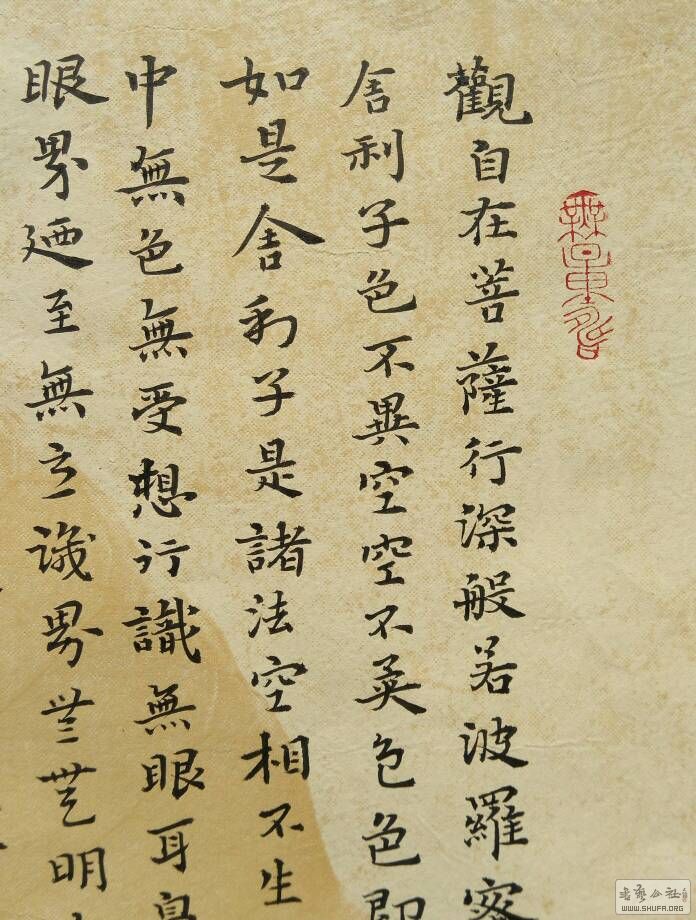 觀自在菩薩行深般若波羅
舍利子色不異空空不異色色即
如是舍利子是諸法空相不生
中無色無受想行識無眼耳鼻
眼界廼至無意識界無無明
書藝公社
WWW.SHUFA.ORG